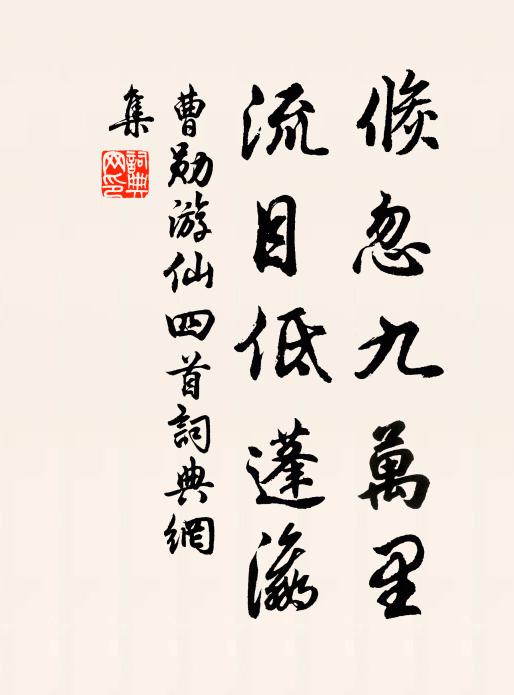 倏忽九萬里
流目低蓬瀛
曹勛游仙四首詞典網
集
詞典網印